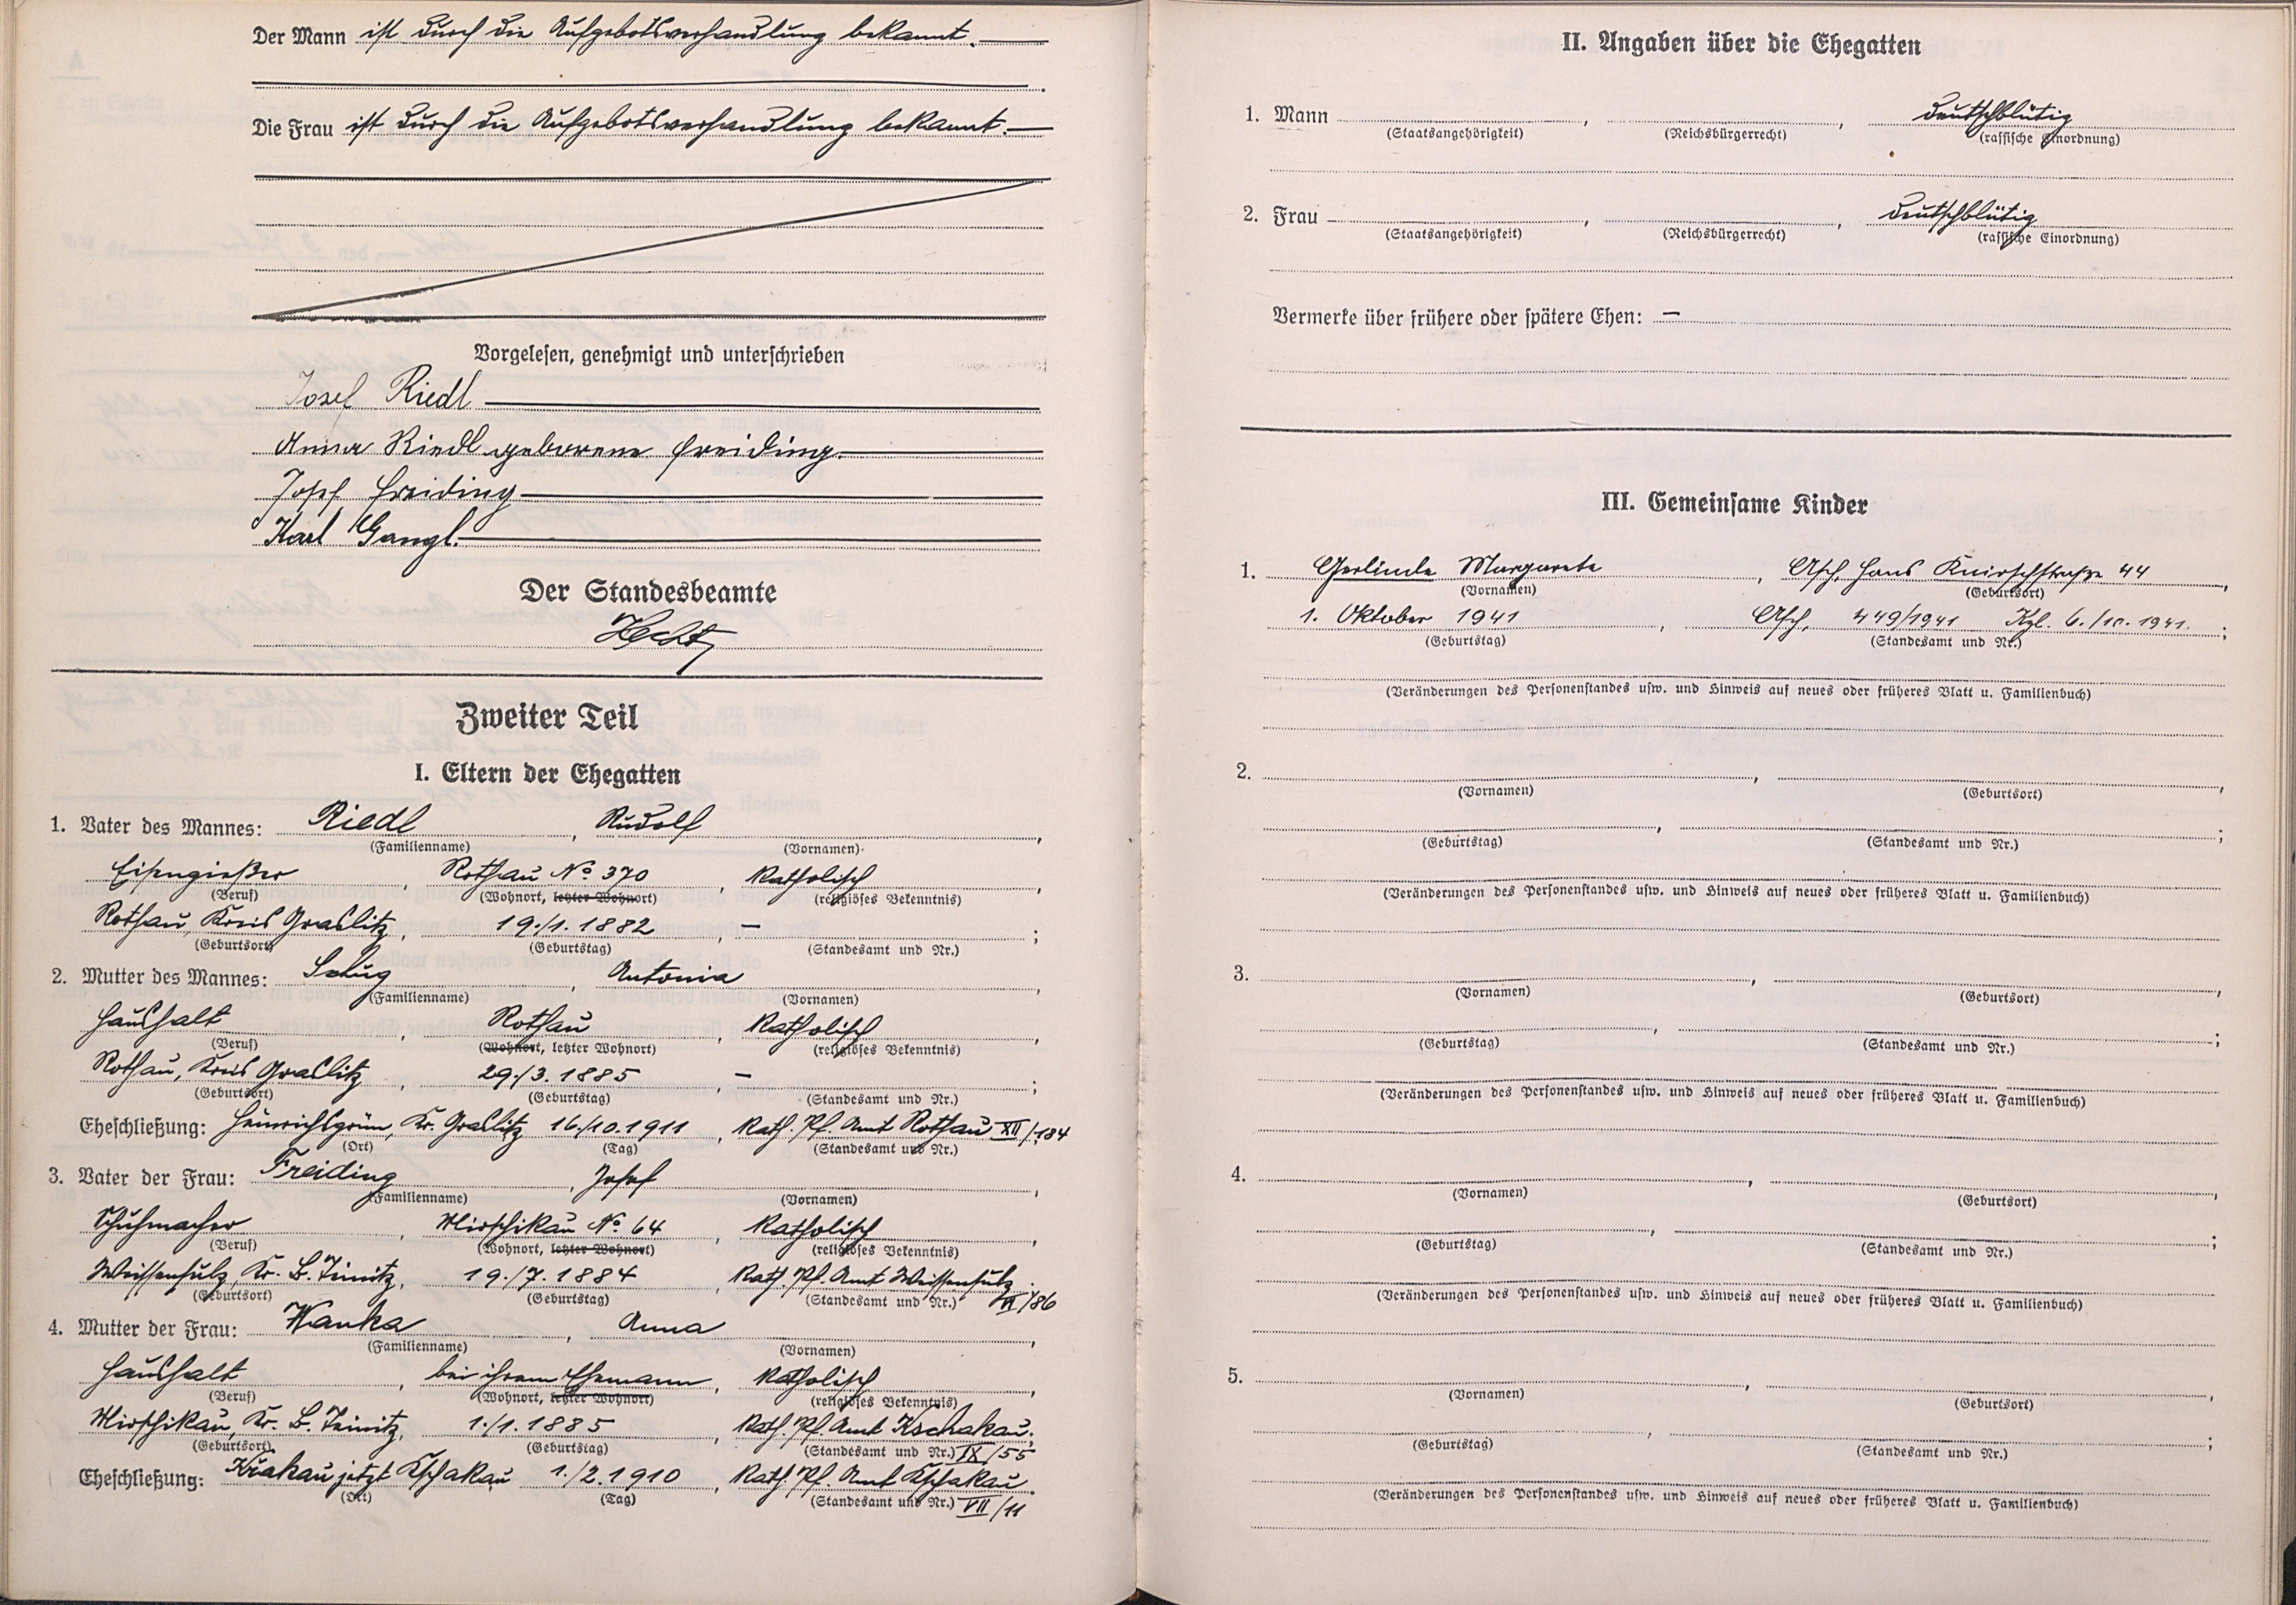 Der Mann ist durch die Aufgebotsverhandlung bekannt.
Die Frau ist durch die Aufgebotsverhandlung bekannt.
Vorgelesen, genehmigt und unterschrieben
Josef Riedl
Anna Riedl geborene Freiding
Josef Freiding
Karl Gangl.
Der Standesbeamte
Hecht
Zweiter Teil
I. Eltern der Ehegatten
1. Vater des Mannes: Riedl, Rudolf,
(Familienname) (Vornamen)
Eisengießer, Rothau No. 370, Katholisch,
(Beruf) (Wohnort, letzter Wohnort) (religiöses Bekenntnis)
Rothau, Kreis Graslitz, 19./1.1882, — ;
(Geburtsort) (Geburtstag) (Standesamt und Nr.)
2. Mutter des Mannes: , Antonia,
(Familienname) (Vornamen)
Haushalt, Rothau, Katholisch,
(Beruf) (Wohnort, letzter Wohnort) (religiöses Bekenntnis)
Rothau, Kreis Graslitz, 29./3.1885, — ;
(Geburtsort) (Geburtstag) (Standesamt und Nr.)
Eheschließung: Heinrichsgrün, Kr. Graslitz 16./10.1911, Kath. Pf. Amt Rothau XII/184
(Ort) (Tag) (Standesamt und Nr.)
3. Vater der Frau: Freiding, Josef,
(Familienname) (Vornamen)
Schuhmacher, Mirschikau No. 64, Katholisch,
(Beruf) (Wohnort, letzter Wohnort) (religiöses Bekenntnis)
Weissensulz, Kr. B. Teinitz, 19./7.1884, Kath. Pf. Amt Weissensulz;
(Geburtsort) (Geburtstag) (Standesamt und Nr.) /86
4. Mutter der Frau: Wanka, Anna,
(Familienname) (Vornamen)
Haushalt, bei ihrem Ehemann, Katholisch,
(Beruf) (Wohnort, letzter Wohnort) (religiöses Bekenntnis)
Mirschikau, Kr. B. Teinitz, 1./1.1885, Kath. Pf. Amt Kschakau;
(Geburtsort) (Geburtstag) (Standesamt und Nr.) IX/55
Eheschließung: Křakau jetzt Kschakau 1./2.1910, Kath. Pf. Amt Kschakau.
(Ort) (Tag) (Standesamt und Nr.) VII/11
II. Angaben über die Ehegatten
1. Mann , , deutschblütig
(Staatsangehörigkeit) (Reichsbürgerrecht) (rassische Einordnung)
2. Frau , , deutschblütig
(Staatsangehörigkeit) (Reichsbürgerrecht) (rassische Einordnung)
Vermerke über frühere oder spätere Ehen: —
III. Gemeinsame Kinder
1. Gerlinde Margarete, Asch, Hans Knirschstraße 44,
(Vornamen) (Geburtsort)
1. Oktober 1941, Asch, 449/1941 Kzl. 6./10.1941.;
(Geburtstag) (Standesamt und Nr.)
(Veränderungen des Personenstandes usw. und Hinweis auf neues oder früheres Blatt u. Familienbuch)
2. , ,
(Vornamen) (Geburtsort)
, ;
(Geburtstag) (Standesamt und Nr.)
(Veränderungen des Personenstandes usw. und Hinweis auf neues oder früheres Blatt u. Familienbuch)
3. , ,
(Vornamen) (Geburtsort)
, ;
(Geburtstag) (Standesamt und Nr.)
(Veränderungen des Personenstandes usw. und Hinweis auf neues oder früheres Blatt u. Familienbuch)
4. , ,
(Vornamen) (Geburtsort)
, ;
(Geburtstag) (Standesamt und Nr.)
(Veränderungen des Personenstandes usw. und Hinweis auf neues oder früheres Blatt u. Familienbuch)
5. , ,
(Vornamen) (Geburtsort)
, ;
(Geburtstag) (Standesamt und Nr.)
(Veränderungen des Personenstandes usw. und Hinweis auf neues oder früheres Blatt u. Familienbuch)